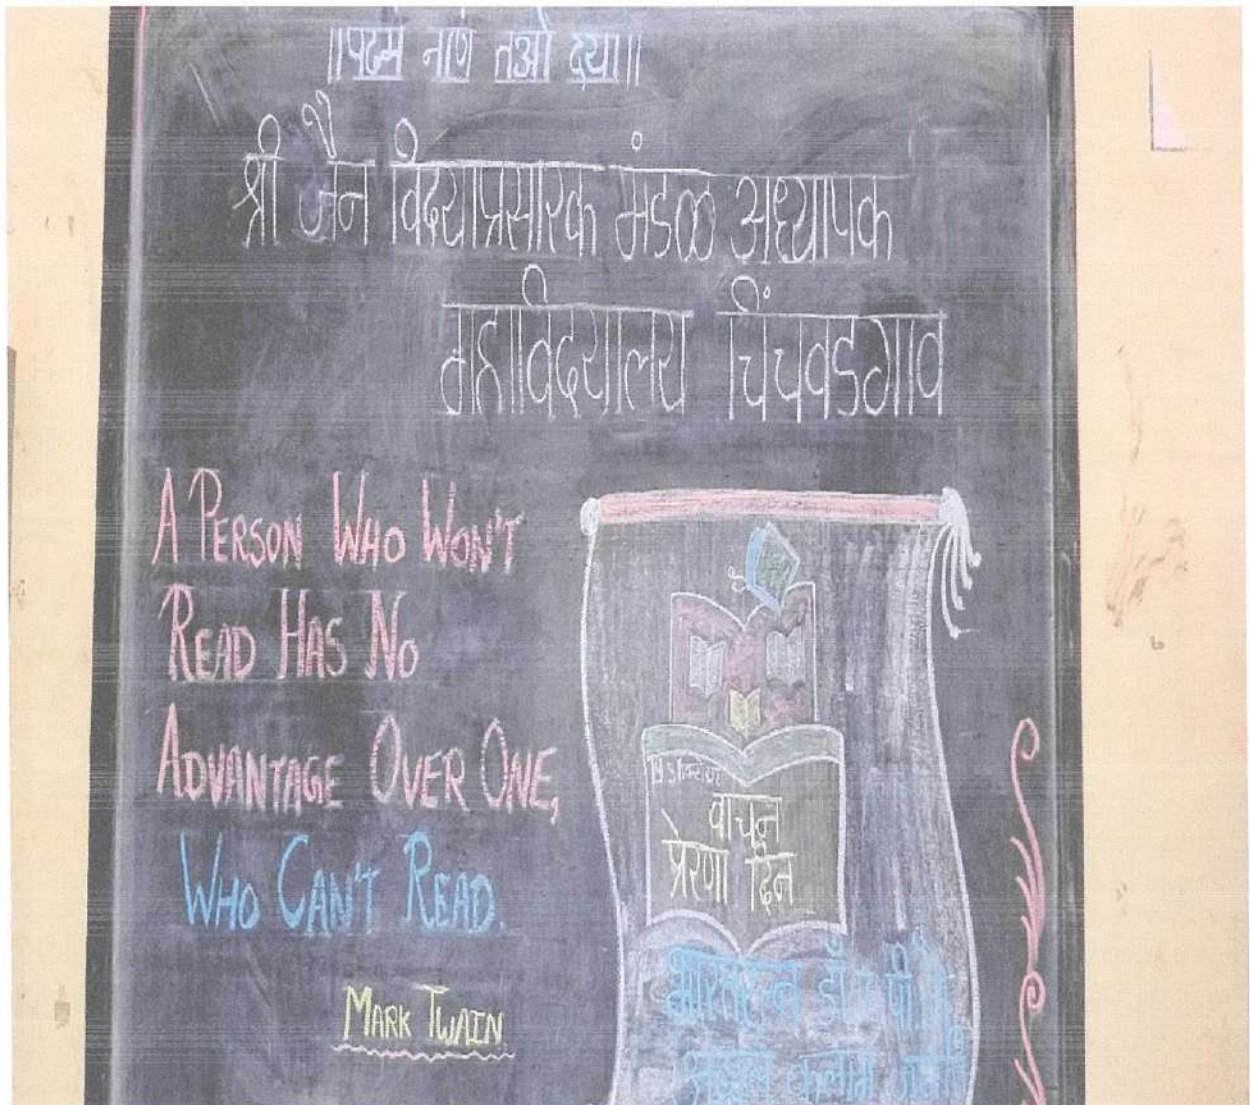 ॥पढमं नाणं तओ दया॥
श्री जैन विद्याप्रसारक मंडळ अध्यापक
महाविद्यालय चिंचवडगाव
A PERSON WHO WON'T
READ HAS NO
ADVANTAGE OVER ONE,
WHO CAN'T READ.
MARK TWAIN
वाचन
प्रेरणा दिन
भारतरत्न डॉ
कलाम